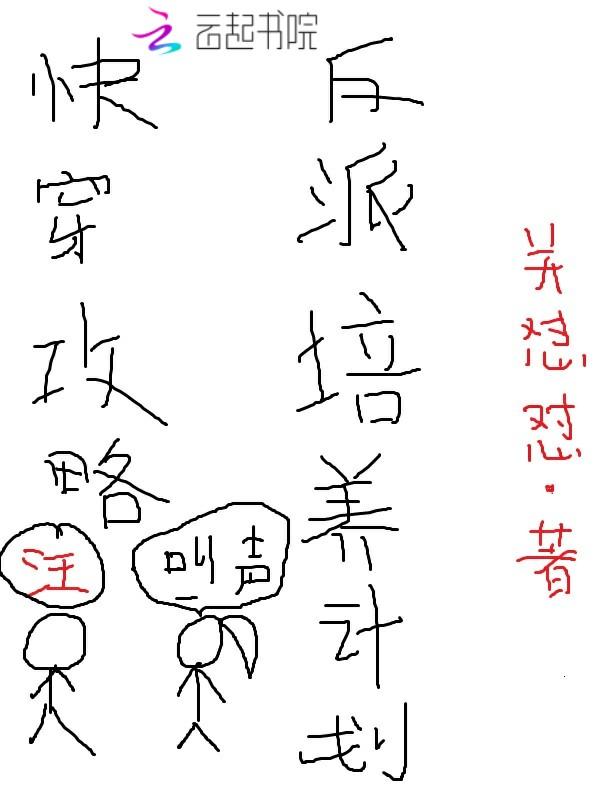 云起书院
快穿攻略
反派培养计划
关怼怼·著
汪
叫一声